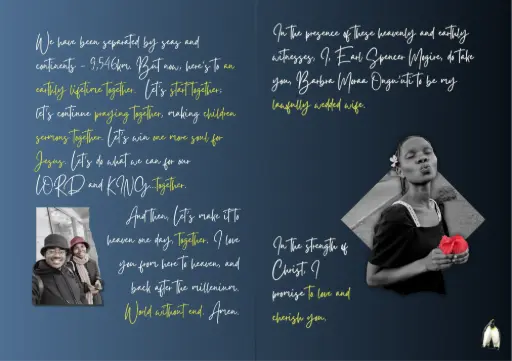 We have been separated by seas and
continents - 9,546km. But now, here's to an
earthly lifetime together. Let's start together;
let's continue praying together, making children
sermons together. Let's win one more soul for
Jesus. Let's do what we can for our
LORD and KING...together.
And then, Let's make it to
heaven one day, together. I love
you from here to heaven, and
back after the millenium.
World without end. Amen.
In the presence of these heavenly and earthly
witnesses, I, Earl Spencer Mogire, do take
you, Barbra Moraa Ongw'iti to be my
lawfully wedded wife.
In the strength of
Christ, I
promise to love and
cherish you.